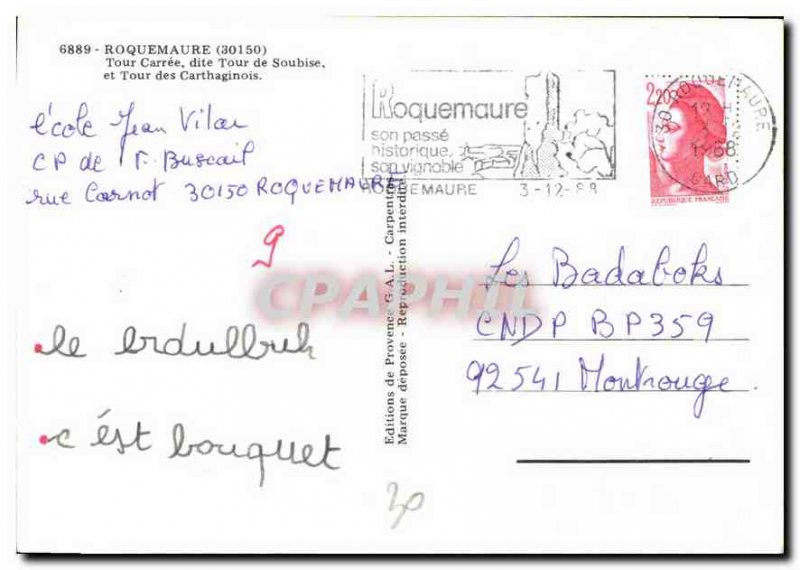 6889 - ROQUEMAURE (30150)
Tour Carrée, dite Tour de Soubise,
et Tour des Carthaginois.
école Jean Vilar
CP de F. Buscail
rue Carnot 30150 ROQUEMAURE
9
.le erdulbuh
.c'ést bouquet
30
Editions de Provence G.A.L. - Carpentras
Marque déposée - Reproduction interdite
Roquemaure
son passé
historique,
son vignoble
ROQUEMAURE 3-12-88
2,20
REPUBLIQUE FRANÇAISE
30 ROQUEMAURE
GARD
Les Badaboks
CNDP BP359
92541 Montrouge.
CPAPHIL